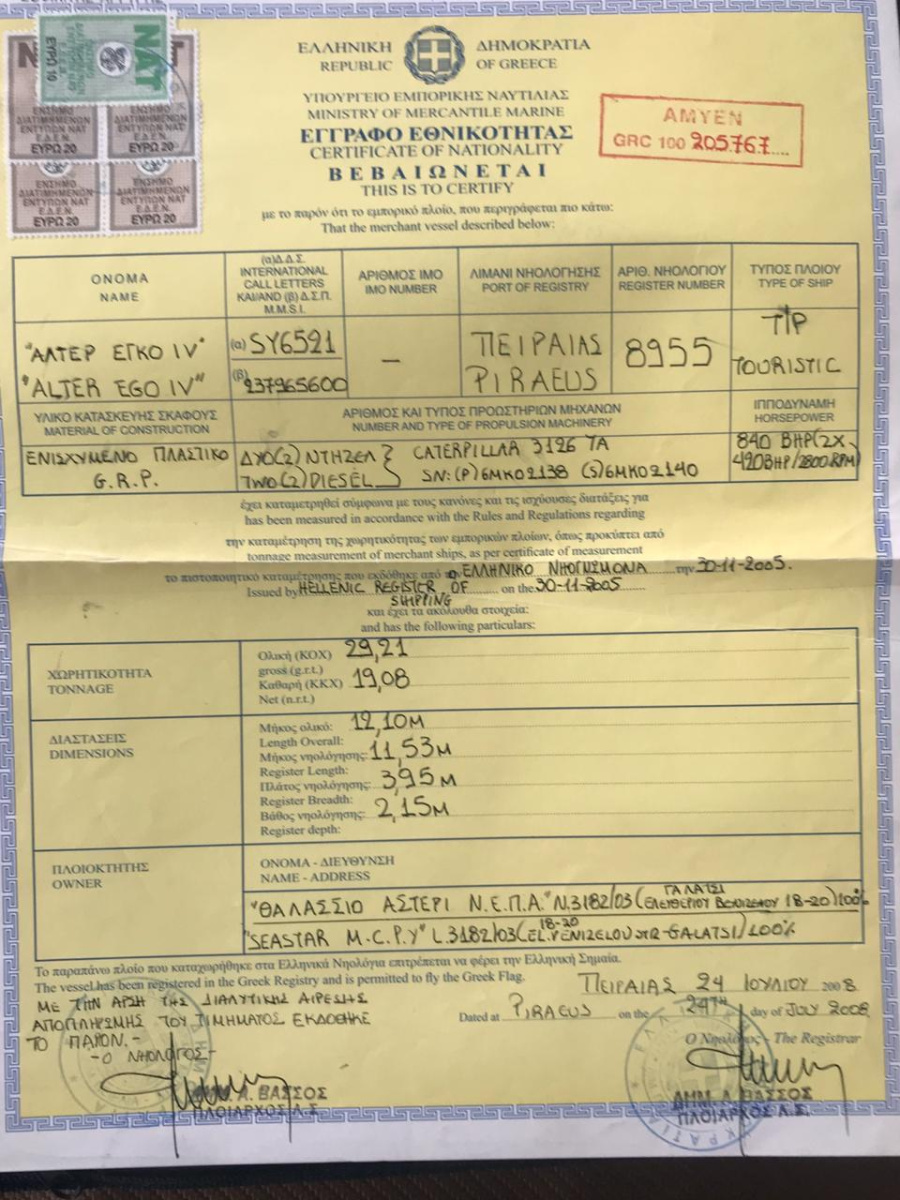 ΝΑΤ
ΕΥΡΩ 10
ΕΝΣΗΜΟ
ΔΙΑΤΙΜΗΜΕΝΩΝ
ΕΝΤΥΠΩΝ ΝΑΤ
Ε.Δ.Ε.Ν.
ΕΥΡΩ 20
ΕΝΣΗΜΟ
ΔΙΑΤΙΜΗΜΕΝΩΝ
ΕΝΤΥΠΩΝ ΝΑΤ
Ε.Δ.Ε.Ν.
ΕΥΡΩ 20
ΕΝΣΗΜΟ
ΔΙΑΤΙΜΗΜΕΝΩΝ
ΕΝΤΥΠΩΝ ΝΑΤ
Ε.Δ.Ε.Ν.
ΕΥΡΩ 20
ΕΝΣΗΜΟ
ΔΙΑΤΙΜΗΜΕΝΩΝ
ΕΝΤΥΠΩΝ ΝΑΤ
Ε.Δ.Ε.Ν.
ΕΥΡΩ 20
ΕΛΛΗΝΙΚΗ ΔΗΜΟΚΡΑΤΙΑ
REPUBLIC OF GREECE
ΥΠΟΥΡΓΕΙΟ ΕΜΠΟΡΙΚΗΣ ΝΑΥΤΙΛΙΑΣ
MINISTRY OF MERCANTILE MARINE
ΕΓΓΡΑΦΟ ΕΘΝΙΚΟΤΗΤΑΣ
CERTIFICATE OF NATIONALITY
ΒΕΒΑΙΩΝΕΤΑΙ
THIS IS TO CERTIFY
ΑΜΥΕΝ
GRC 100 205767
με το παρόν ότι το εμπορικό πλοίο, που περιγράφεται πιο κάτω:
That the merchant vessel described below:
ΟΝΟΜΑ
NAME
(α)Δ.Δ.Σ.
INTERNATIONAL
CALL LETTERS
ΚΑΙ/AND (β) Δ.Σ.Π.
M.M.S.I.
ΑΡΙΘΜΟΣ ΙΜΟ
IMO NUMBER
ΛΙΜΑΝΙ ΝΗΟΛΟΓΗΣΗΣ
PORT OF REGISTRY
ΑΡΙΘ. ΝΗΟΛΟΓΙΟΥ
REGISTER NUMBER
ΤΥΠΟΣ ΠΛΟΙΟΥ
TYPE OF SHIP
"ΑΛΤΕΡ ΕΓΚΟ IV"
"ALTER EGO IV"
(α) SY6521
(β) 237965600
–
ΠΕΙΡΑΙΑΣ
PIRAEUS
8955
Τ/Ρ
TOURISTIC
ΥΛΙΚΟ ΚΑΤΑΣΚΕΥΗΣ ΣΚΑΦΟΥΣ
MATERIAL OF CONSTRUCTION
ΑΡΙΘΜΟΣ ΚΑΙ ΤΥΠΟΣ ΠΡΟΩΣΤΗΡΙΩΝ ΜΗΧΑΝΩΝ
NUMBER AND TYPE OF PROPULSION MACHINERY
ΙΠΠΟΔΥΝΑΜΗ
HORSEPOWER
ΕΝΙΣΧΥΜΕΝΟ ΠΛΑΣΤΙΚΟ
G.R.P.
ΔΥΟ(2) ΝΤΗΖΕΛ } CATERPILLAR 3126 TA
TWO(2) DIESEL } SN: (P) 6MK02138 (S) 6MK02140
840 BHP (2X
420BHP/2800 RPM)
έχει καταμετρηθεί σύμφωνα με τους κανόνες και τις ισχύουσες διατάξεις για
has been measured in accordance with the Rules and Regulations regarding
την καταμέτρηση της χωρητικότητας των εμπορικών πλοίων, όπως προκύπτει από
tonnage measurement of merchant ships, as per certificate of measurement
το πιστοποιητικό καταμέτρησης που εκδόθηκε από το ΕΛΛΗΝΙΚΟ ΝΗΟΓΝΩΜΟΝΑ την 30-11-2005.
Issued by HELLENIC REGISTER OF SHIPPING on the 30-11-2005
και έχει τα ακόλουθα στοιχεία:
and has the following particulars:
ΧΩΡΗΤΙΚΟΤΗΤΑ
TONNAGE
Ολική (ΚΟΧ) 29,21
gross (g.r.t.)
Καθαρή (ΚΚΧ) 19,08
Net (n.r.t.)
ΔΙΑΣΤΑΣΕΙΣ
DIMENSIONS
Μήκος ολικό: 12,10 Μ
Length Overall:
Μήκος νηολόγησης: 11,53 Μ
Register Length:
Πλάτος νηολόγησης: 3,95 Μ
Register Breadth:
Βάθος νηολόγησης: 2,15 Μ
Register depth:
ΠΛΟΙΟΚΤΗΤΗΣ
OWNER
ΟΝΟΜΑ - ΔΙΕΥΘΥΝΣΗ
NAME - ADDRESS
"ΘΑΛΑΣΣΙΟ ΑΣΤΕΡΙ Ν.Ε.Π.Α." Ν.3182/03 (ΕΛΕΥΘΕΡΙΟΥ ΒΕΝΙΖΕΛΟΥ 18-20 ΓΑΛΑΤΣΙ) 100%
"SEASTAR M.C.P.Y" L.3182/03 (EL.VENIZELOU 18-20 STR-GALATSI) 100%
Το παραπάνω πλοίο που καταχωρήθηκε στα Ελληνικά Νηολόγια επιτρέπεται να φέρει την Ελληνική Σημαία.
The vessel has been registered in the Greek Registry and is permitted to fly the Greek Flag.
ΠΕΙΡΑΙΑΣ 24 ΙΟΥΛΙΟΥ 2008
Dated at PIRAEUS on the 24TH day of JULY 2008
ΜΕ ΤΗΝ ΑΡΣΗ ΤΗΣ ΔΙΑΛΥΤΙΚΗΣ ΑΙΡΕΣΗΣ
ΑΠΟΠΛΗΡΩΜΗΣ ΤΟΥ ΤΙΜΗΜΑΤΟΣ ΕΚΔΟΘΗΚΕ
ΤΟ ΠΑΡΟΝ.-
- Ο ΝΗΟΛΟΓΟΣ -
Ο Νηολόγος - The Registrar
Α. ΒΑΣΣΟΣ
ΠΛΟΙΑΡΧΟΣ Λ.Σ.
ΔΗΜ. Α. ΒΑΣΣΟΣ
ΠΛΟΙΑΡΧΟΣ Λ.Σ.